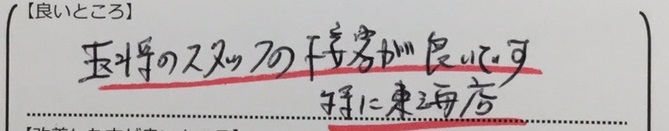 【良いところ】
玉将のスタッフの接客が良いです
特に東海店